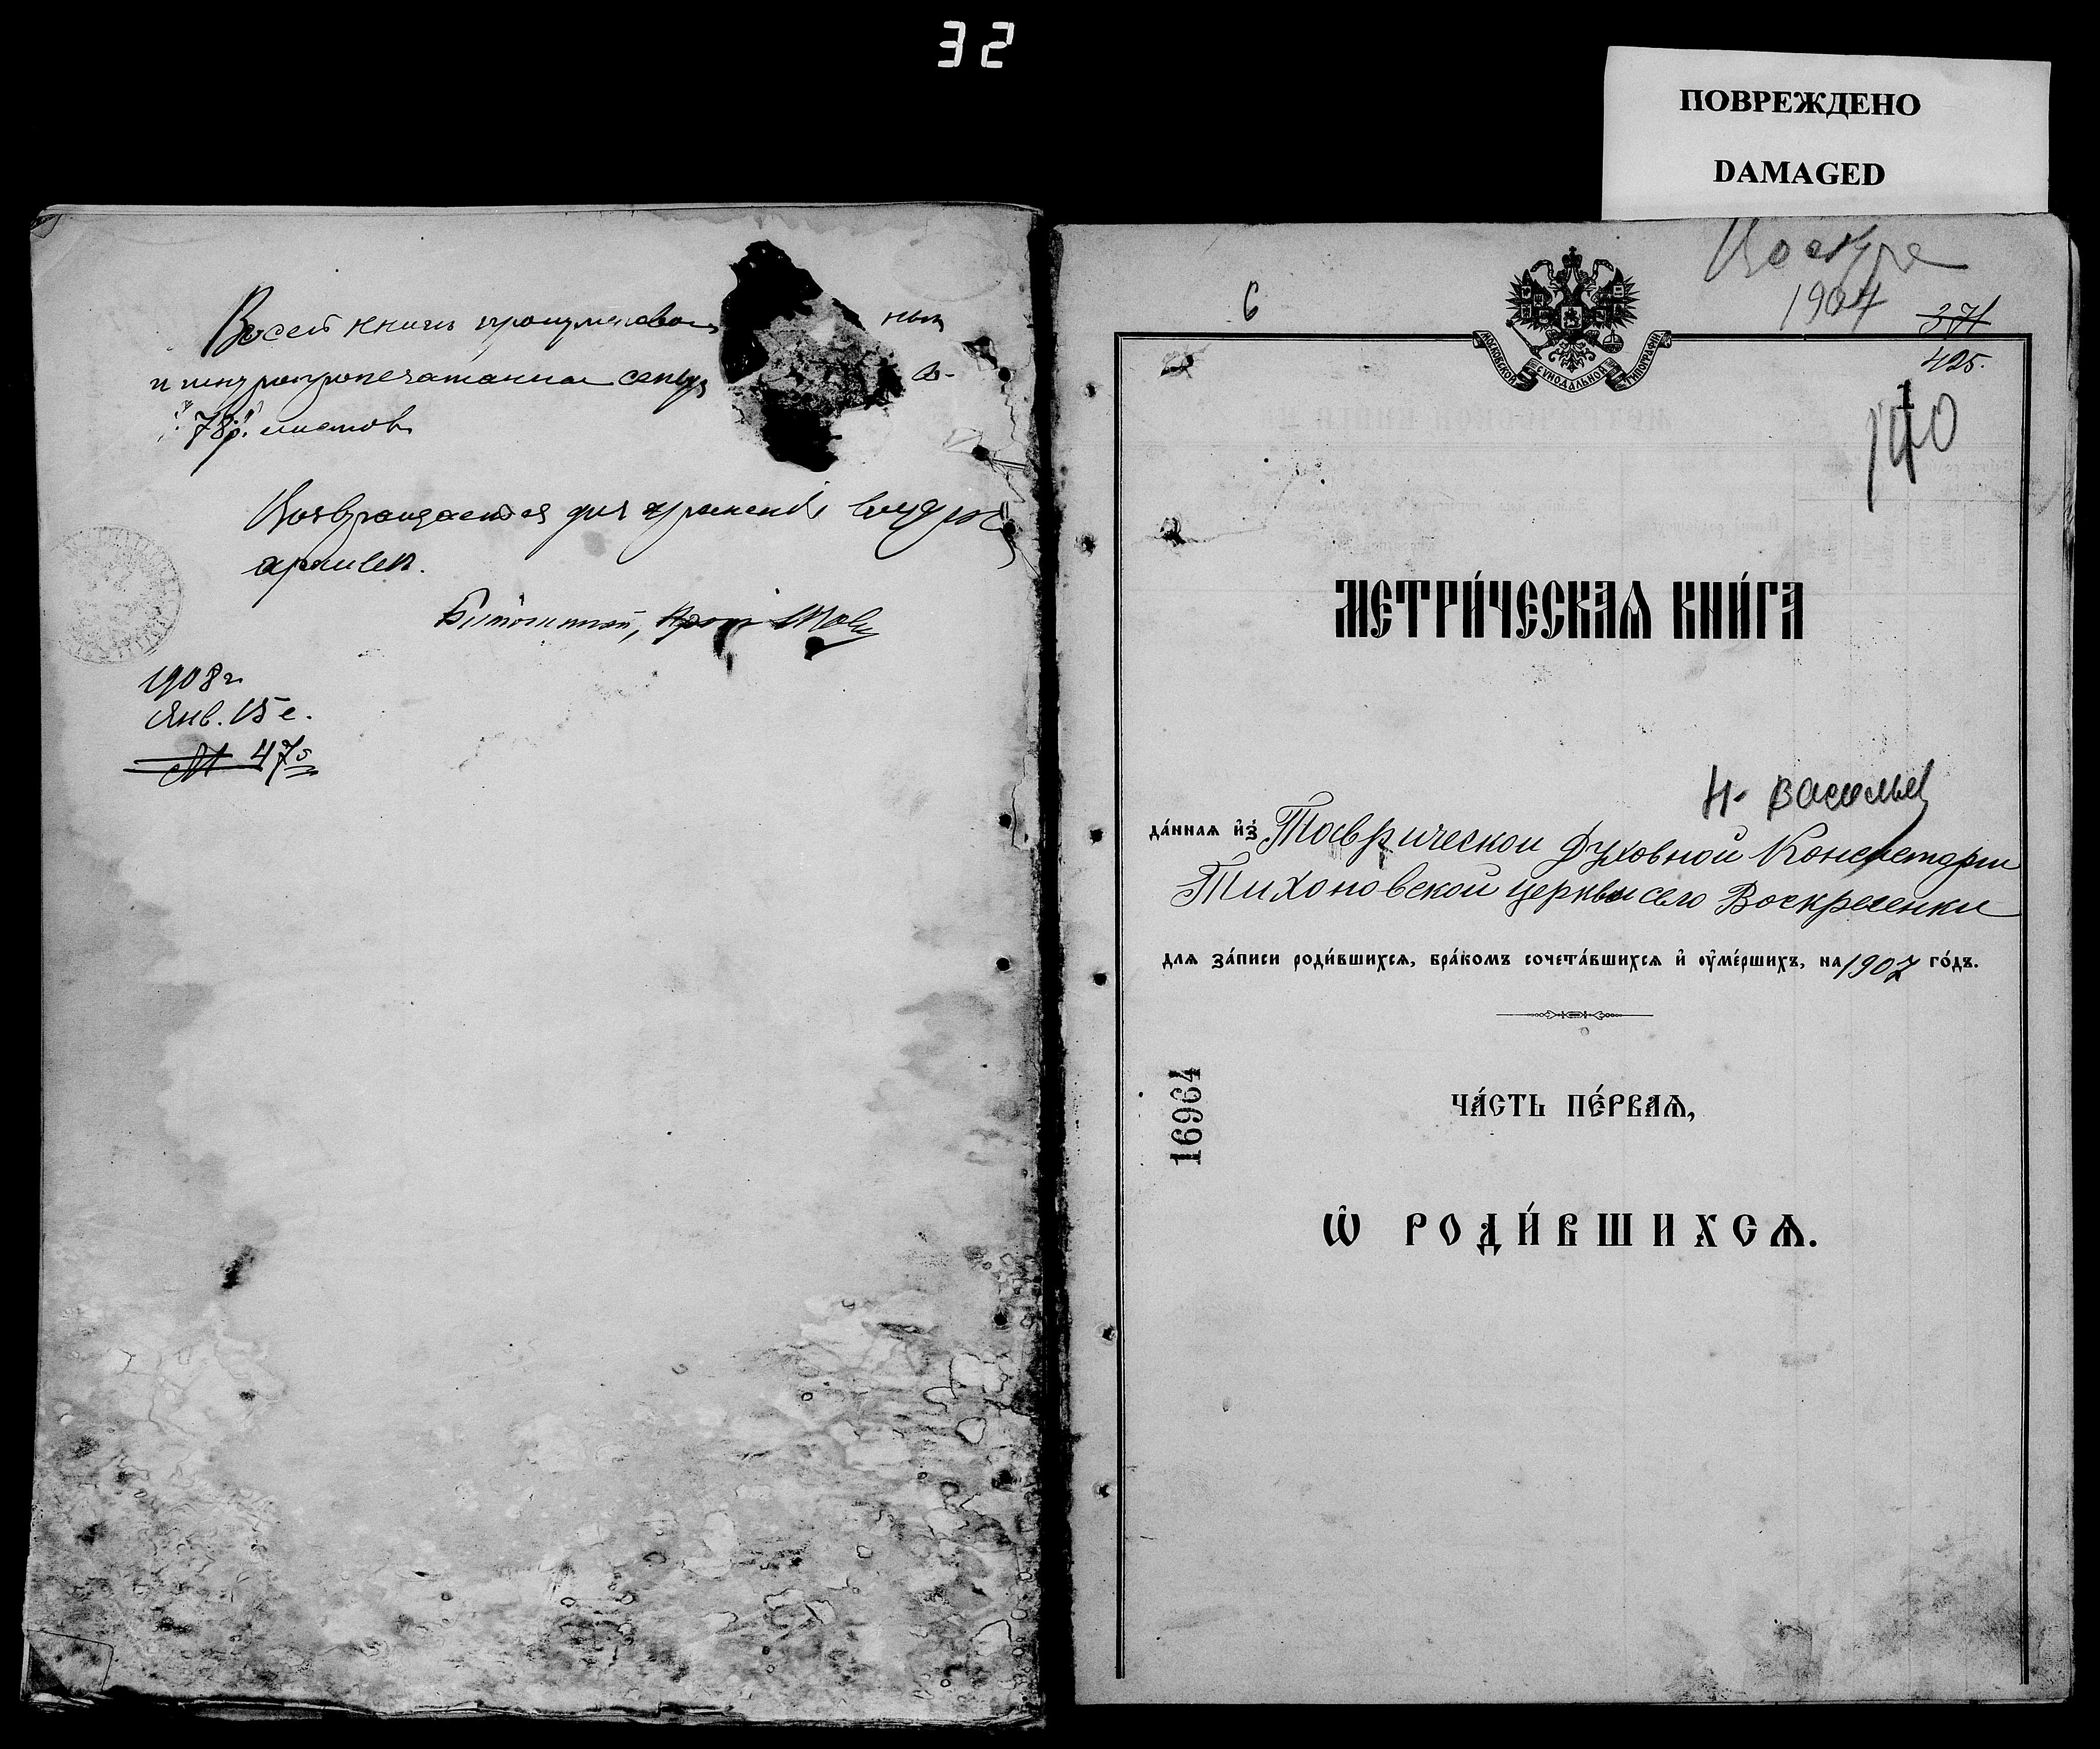 32
ПОВРЕЖДЕНО
DAMAGED
Всей книги пронумерован ных
и шнуропропечатанных
"78" листов
Возвращается для хранения
архивѣ.
1908 г
Янв. 15 е.
№ 47
6
1904
371
425.
1
140
МОСКОВСКОЙ СѴНОДАЛЬНОЙ ТИПОГРАФІИ
МЕТРИ́ЧЕСКАѦ КНИ́ГА
Н. Васильев
да́ннаѧ и҆з̾ Таврической Духовной Консистории
Тихоновской церквы село Воскресенки
для за́писи роди́вшихсѧ, бра́комъ сочета́вшихсѧ и҆ ᲂу҆ме́ршихъ, на 1907 го́дъ.
16964
ЧА́СТЬ ПЕ́РВАѦ,
Ѽ РОДИ́ВШИХСѦ.